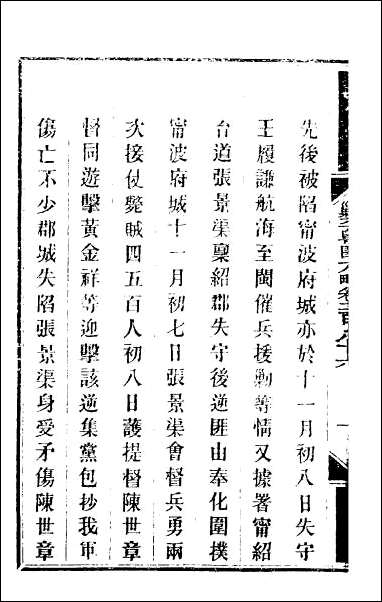 先後被陷甯波府城亦於十一月初八日失守
王履謙航海至閩催兵援勦等情又據署甯紹
台道張景渠稟紹郡失守後逆匪山奉化圍撲
甯波府城十一月初七日張景渠會督兵勇兩
次接仗斃賊四五百人初八日護提督陳世章
督同遊擊黃金祥等迎擊該逆集黨包抄我軍
傷亡不少郡城失陷張景渠身受矛傷陳世章